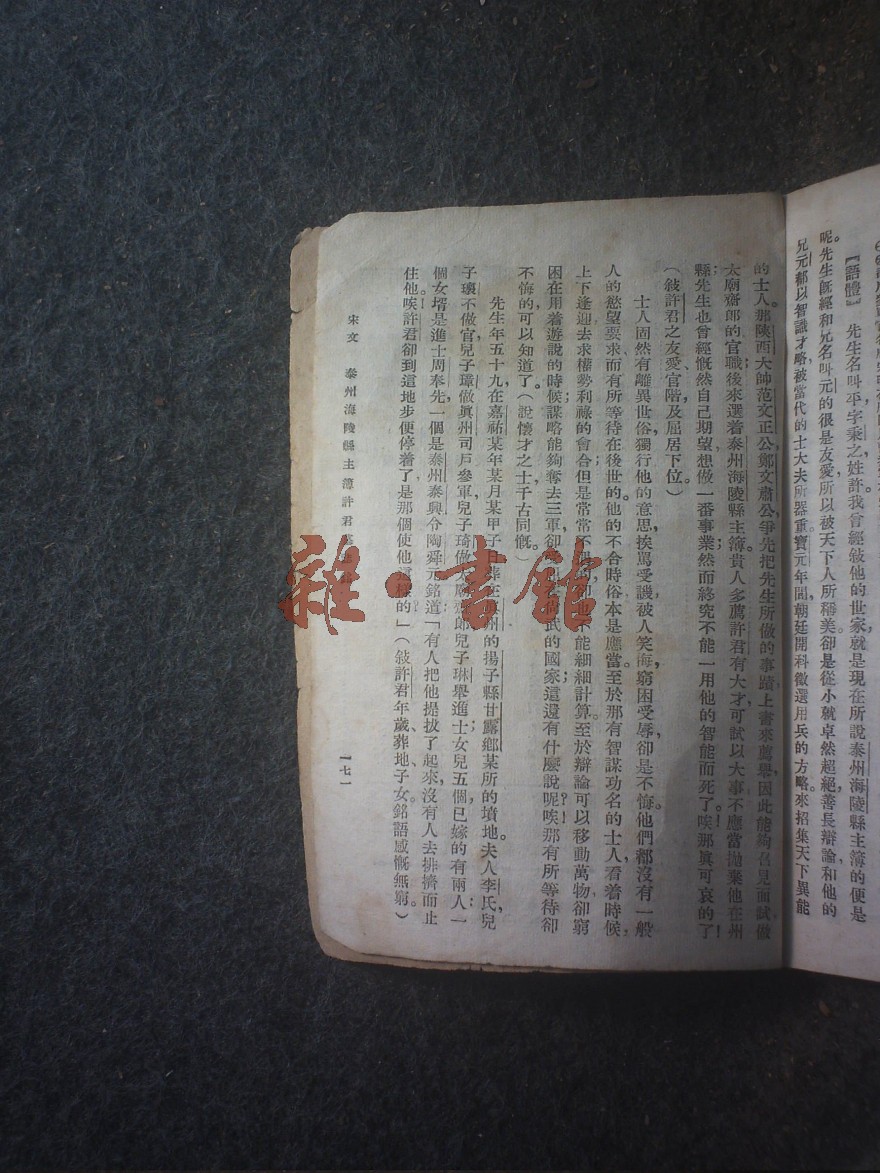 『語體』　先生名叫平，字秉之，姓許。我曾經敍他的世家，就是現在所說泰州海陵縣主簿的便是
呢。先生既經和兄名叫元的很是友愛，所以被天下人所稱美，卻是從小就卓然超絕，善長辯論，和他的
兄元都以智識才略，被當代的士大夫所器重。寶元年間，朝廷開科徵選用兵的方略，來招集天下異能
的士人，那陝西大帥范文正公、鄭文肅公爭先把先生所做的事蹟上書來薦舉，因此能夠召見面試，做
太廟齋郎的官職，後來選着泰州海陵縣主簿。貴人多薦許君有大才，可試以大事，不應當拋棄他在州
縣；先生也曾經慨然自己期望，想做一番事業，然而終究不能一用他的智能而死了。唉！那眞可哀的了！
（敍許君之友愛官階及屈居下位。）
士人固然有離異世俗，獨行他的意思，挨罵受譏，被人笑侮，窮困受辱，卻是不悔。他們都沒有一般
人的慾望要求，而有所等待在後世的；他的不合時俗，本是應當。至於那有智謀功名的士人，看着時候，
上下逢迎，去求權勢利祿的會合，但是常常不
不能細細計算。至於辯論可以移動萬物，卻窮
困在用着遊說的時候；謀略能夠奪去三軍，卻
尚武的國家，這還有什麼說呢？唉！那有所等待卻
不悔的，可以知道了。（說懷才之士，千古同慨。）
先生年五十九，在嘉祐某年某月某甲子日，葬在眞州的揚子縣甘露鄉某所的墳地。夫人李氏，兒
子瓌，不做官；兒子璋，做眞州司戶參軍；兒子琦，做太廟齋郎；兒子琳，舉進士。女兒五個，已嫁的有兩人：一
個女壻是進士周奉先，一個是泰州泰興令陶舜元。銘道：「有人把他提拔了起來，沒有人去排擠而止
住他。唉！許君卻到這地步便停着了，是那個使他這樣的！」（敍許君年歲、葬地、子女，銘語感慨無窮。）
宋文　泰州海陵縣主簿許君墓誌銘
一七一
雜·書館